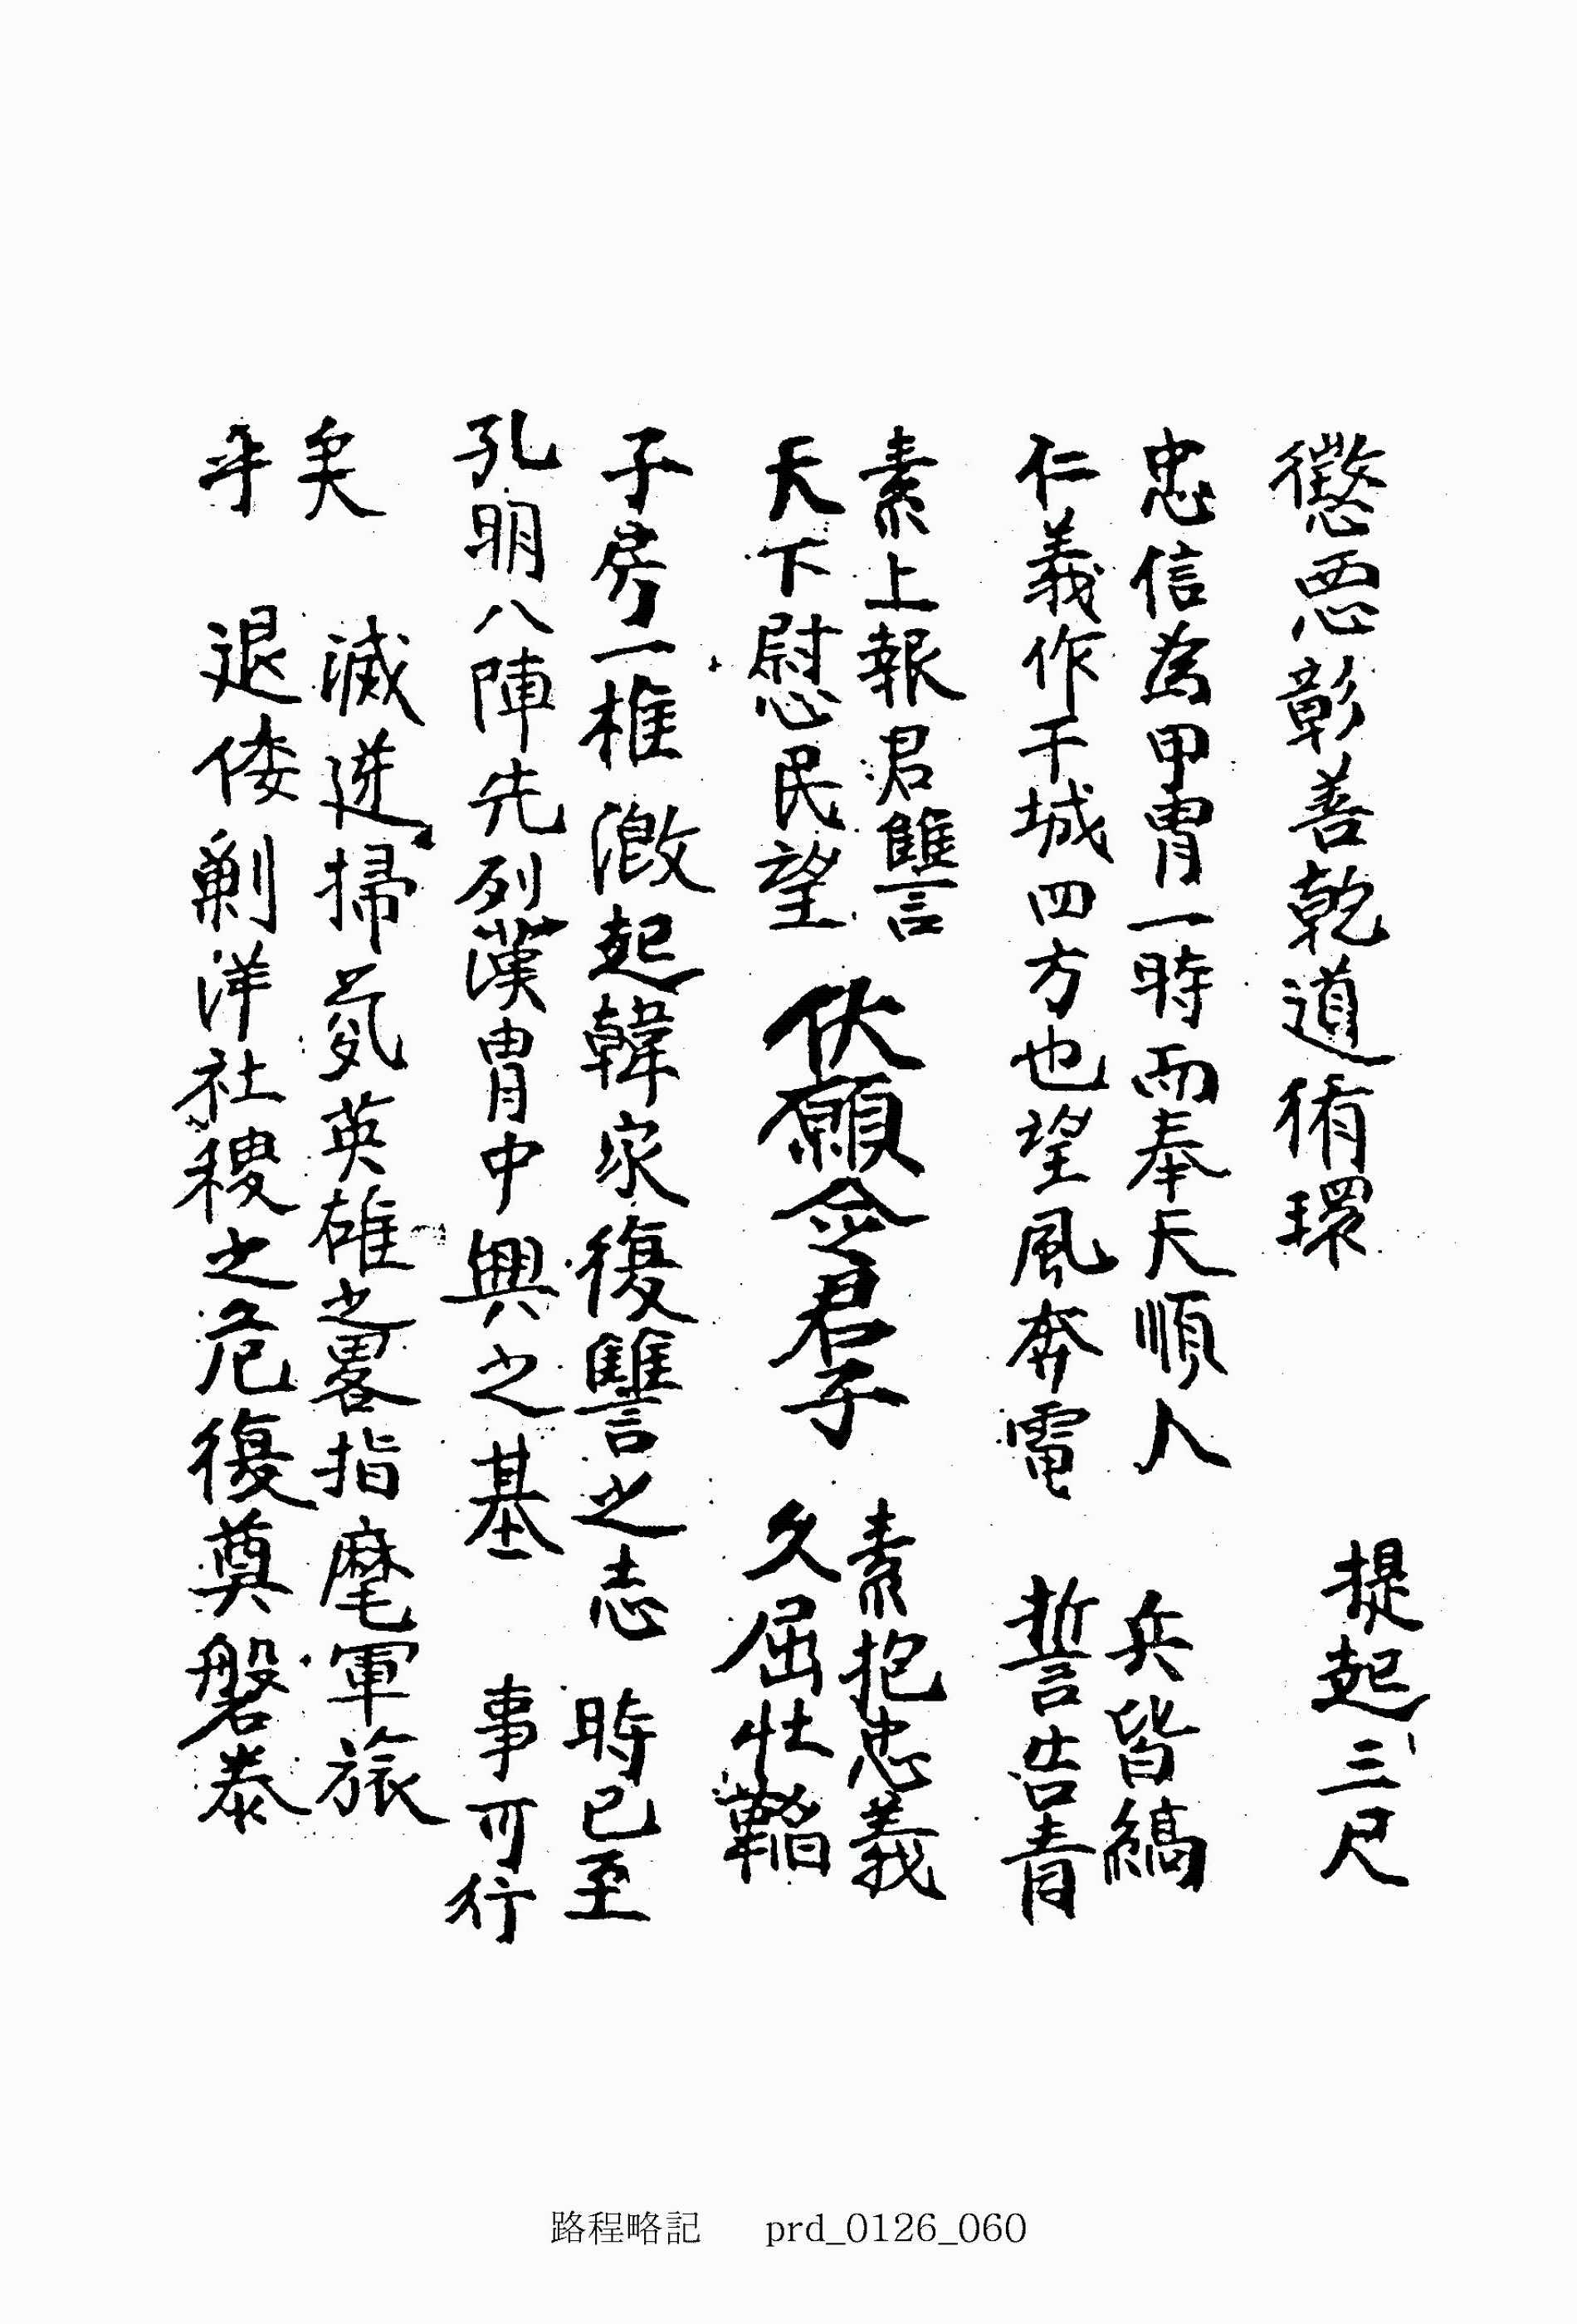 懲惡彰善乾道循環 提起三尺
忠信爲甲冑一時而奉天順人 兵皆縞
仁義作干城四方也望風奔電 誓告青
素上報君讐
天下慰民望
伏願僉君子
素抱忠義
久屈壯韜
子房一椎激起韓家復讐之志 時已至
孔明八陣先列漢冑中興之基 事可行
矣 滅逆掃氛英雄之畧指麾軍旅
乎 退倭剿洋社稷之危復奠磐泰
路程略記 prd_0126_060